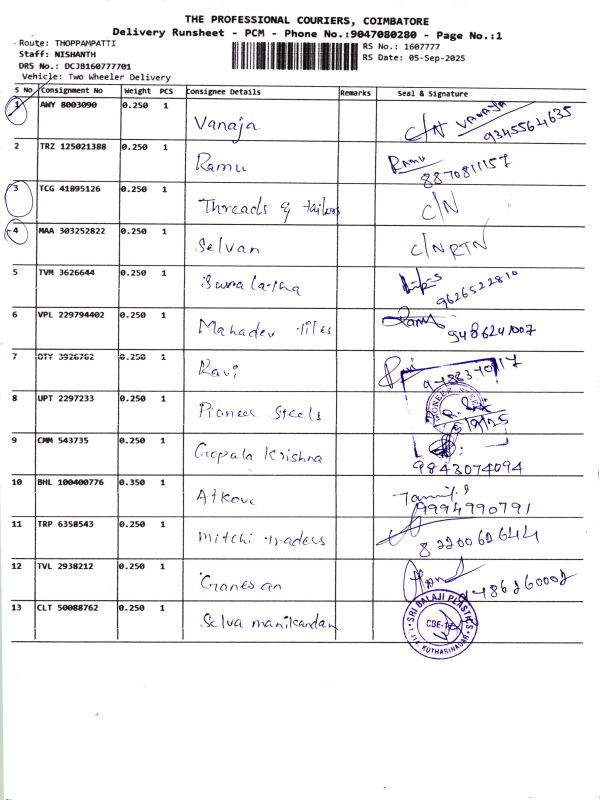 THE PROFESSIONAL COURIERS, COIMBATORE
Delivery Runsheet - PCM - Phone No.:9047080280 - Page No.:1
Route: THOPPAMPATTI
Staff: NISHANTH
DRS No.: DCJB160777701
Vehicle: Two Wheeler Delivery
RS No.: 1607777
RS Date: 05-Sep-2025
S No Consignment No Weight PCS Consignee Details Remarks Seal & Signature
1 AWY 8003090 0.250 1 Vanaja C/N VANAJA 9345564635
2 TRZ 125021388 0.250 1 Ramu Ramu 8870811157
3 TCG 41895126 0.250 1 Threads & tailors C/N
4 MAA 303252822 0.250 1 Selvan C/N RTN
5 TVM 3626644 0.250 1 9626522810
6 VPL 229794402 0.250 1 Mahadev tiles 9486241007
7 OTY 3926762 0.250 1 Ravi
8 UPT 2297233 0.250 1 Pioneer Steels PIONEER 5/9/25
9 CMM 543735 0.250 1 Gopala Krishna 9843074094
10 BHL 100400776 0.350 1 Atkove Tamil.S 9994990791
11 TRP 6358543 0.250 1 Mitchi traders 8220062644
12 TVL 2938212 0.250 1 Ganesan
13 CLT 50088762 0.250 1 Selva manikandan SRI BALAJI PLASTICS CBE-17 KUTHARINAGAR